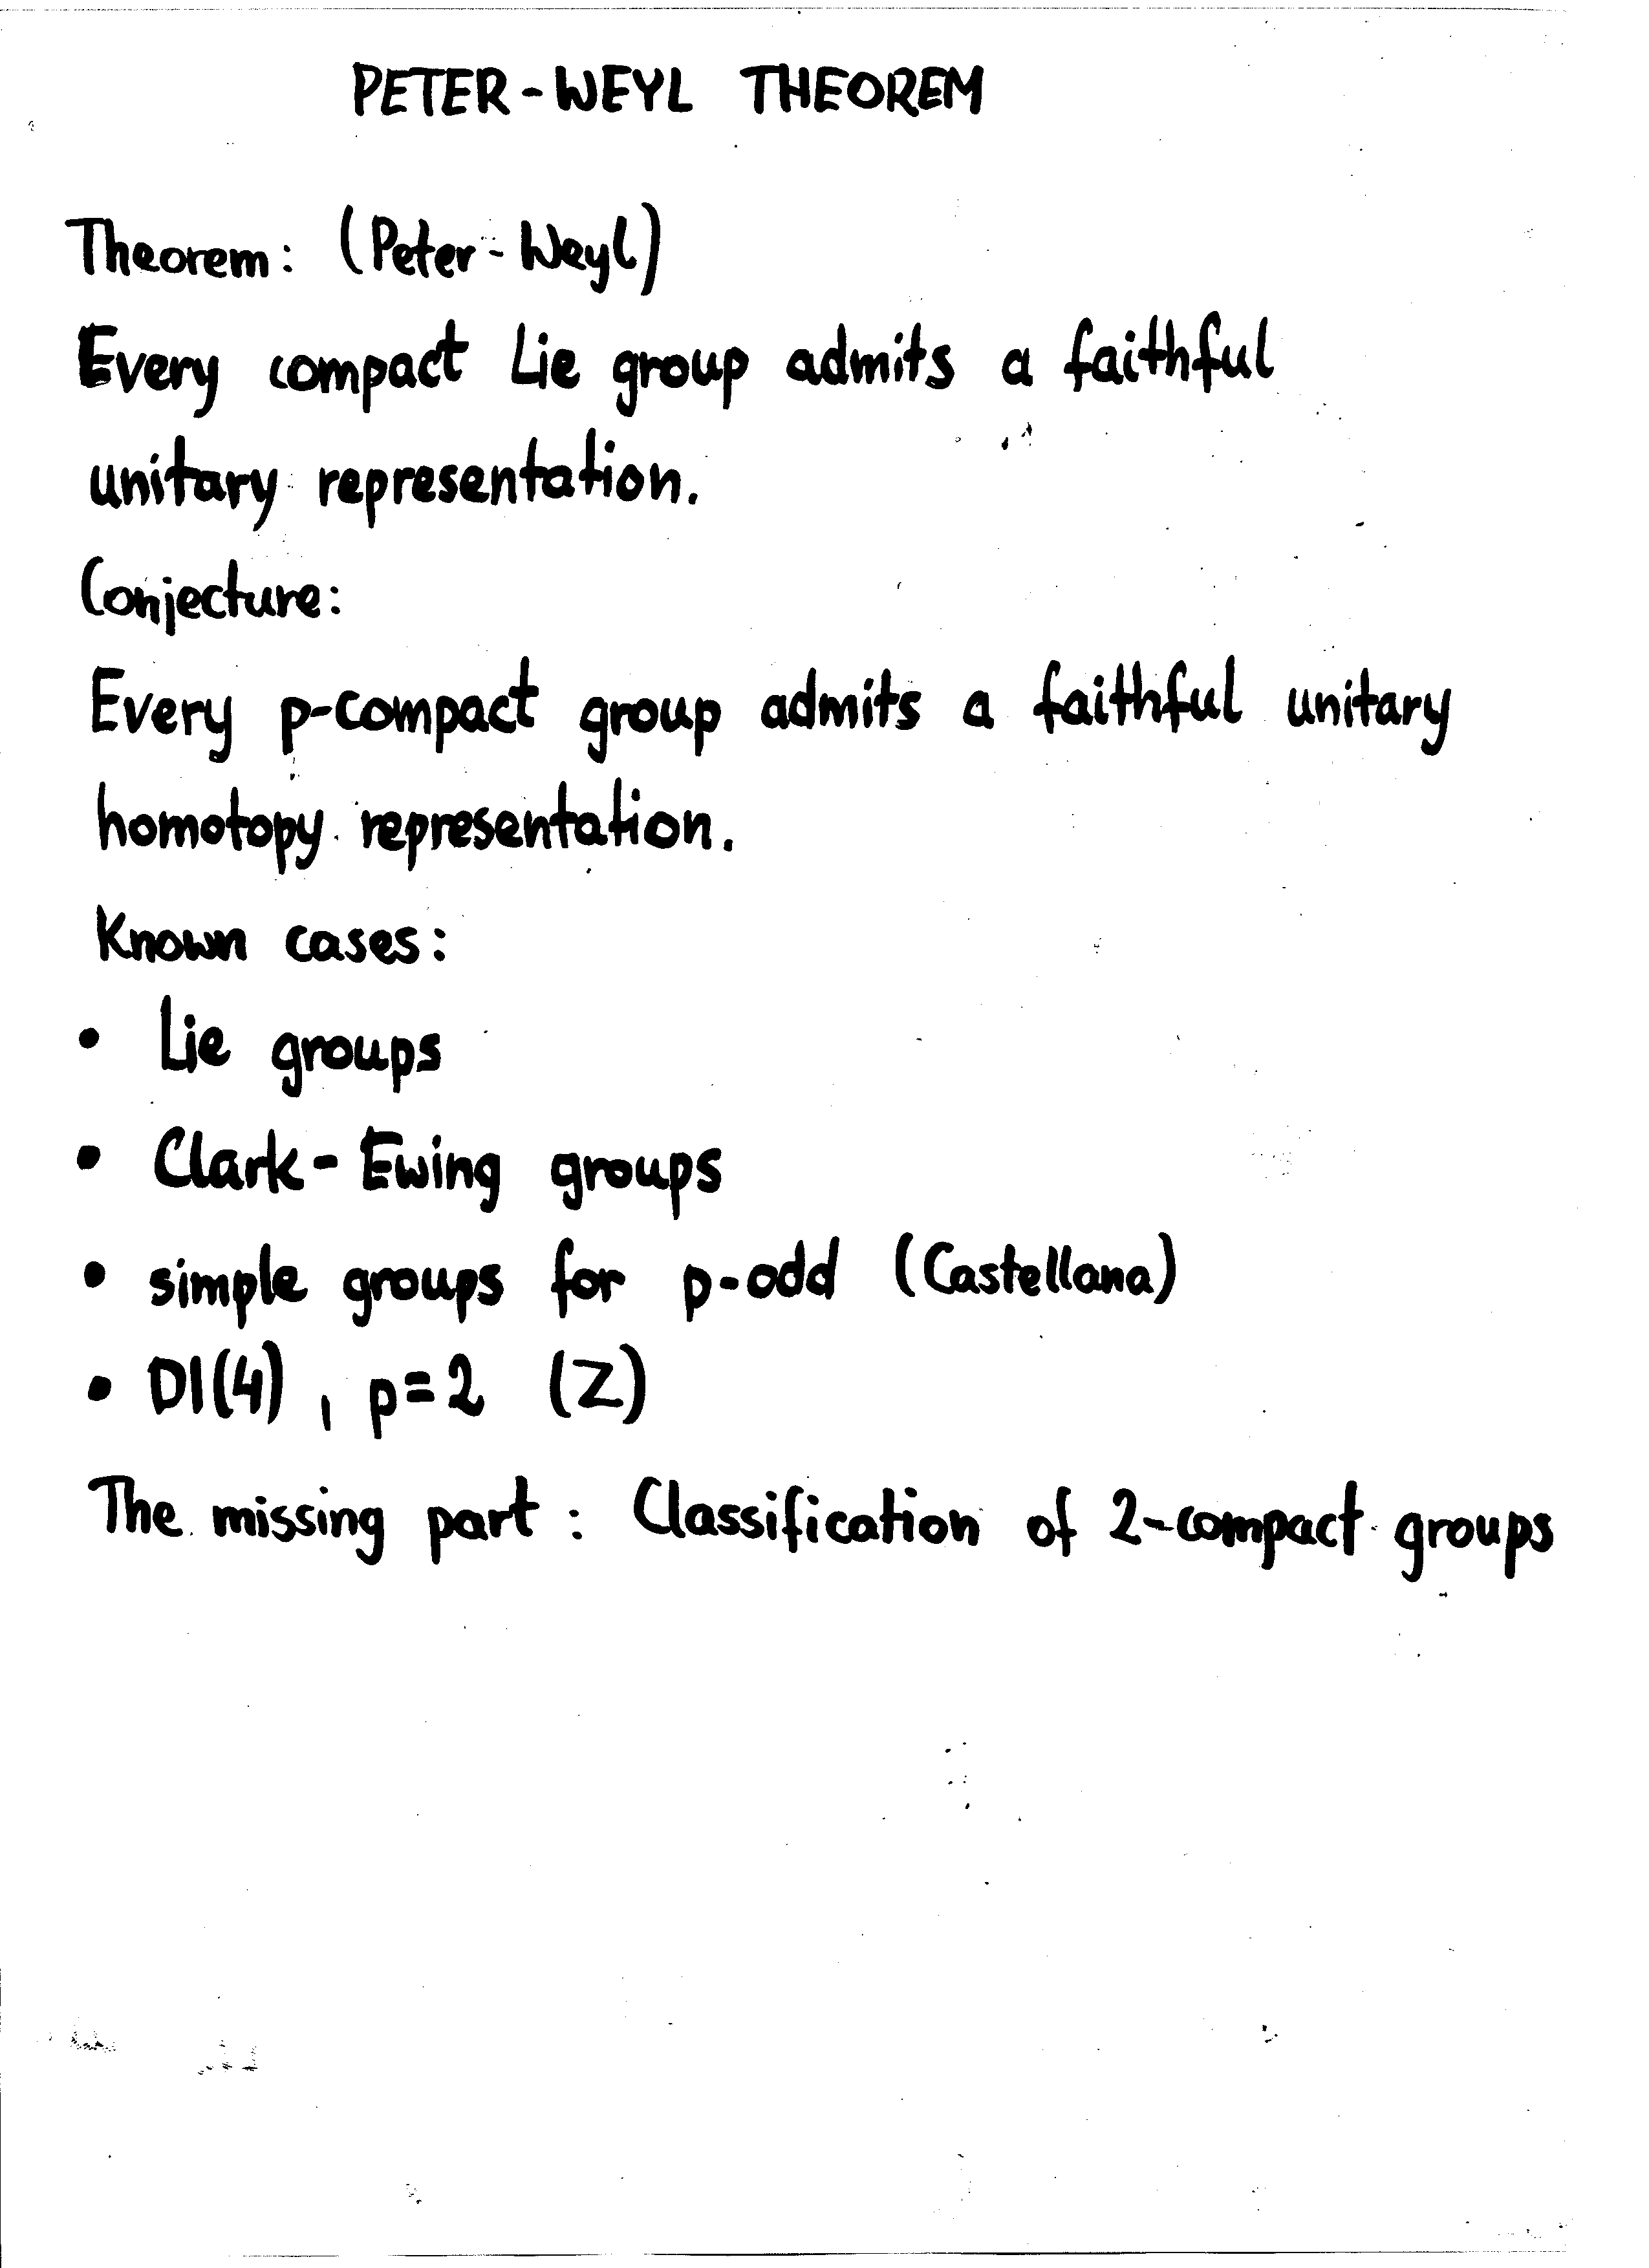 PETER-WEYL THEOREM
Theorem: (Peter-Weyl)
Every compact Lie group admits a faithful
unitary representation.
Conjecture:
Every p-compact group admits a faithful unitary
homotopy representation.
Known cases:
• Lie groups
• Clark-Ewing groups
• simple groups for p-odd (Castellana)
• DI(4), p=2 (Z)
The missing part: Classification of 2-compact groups